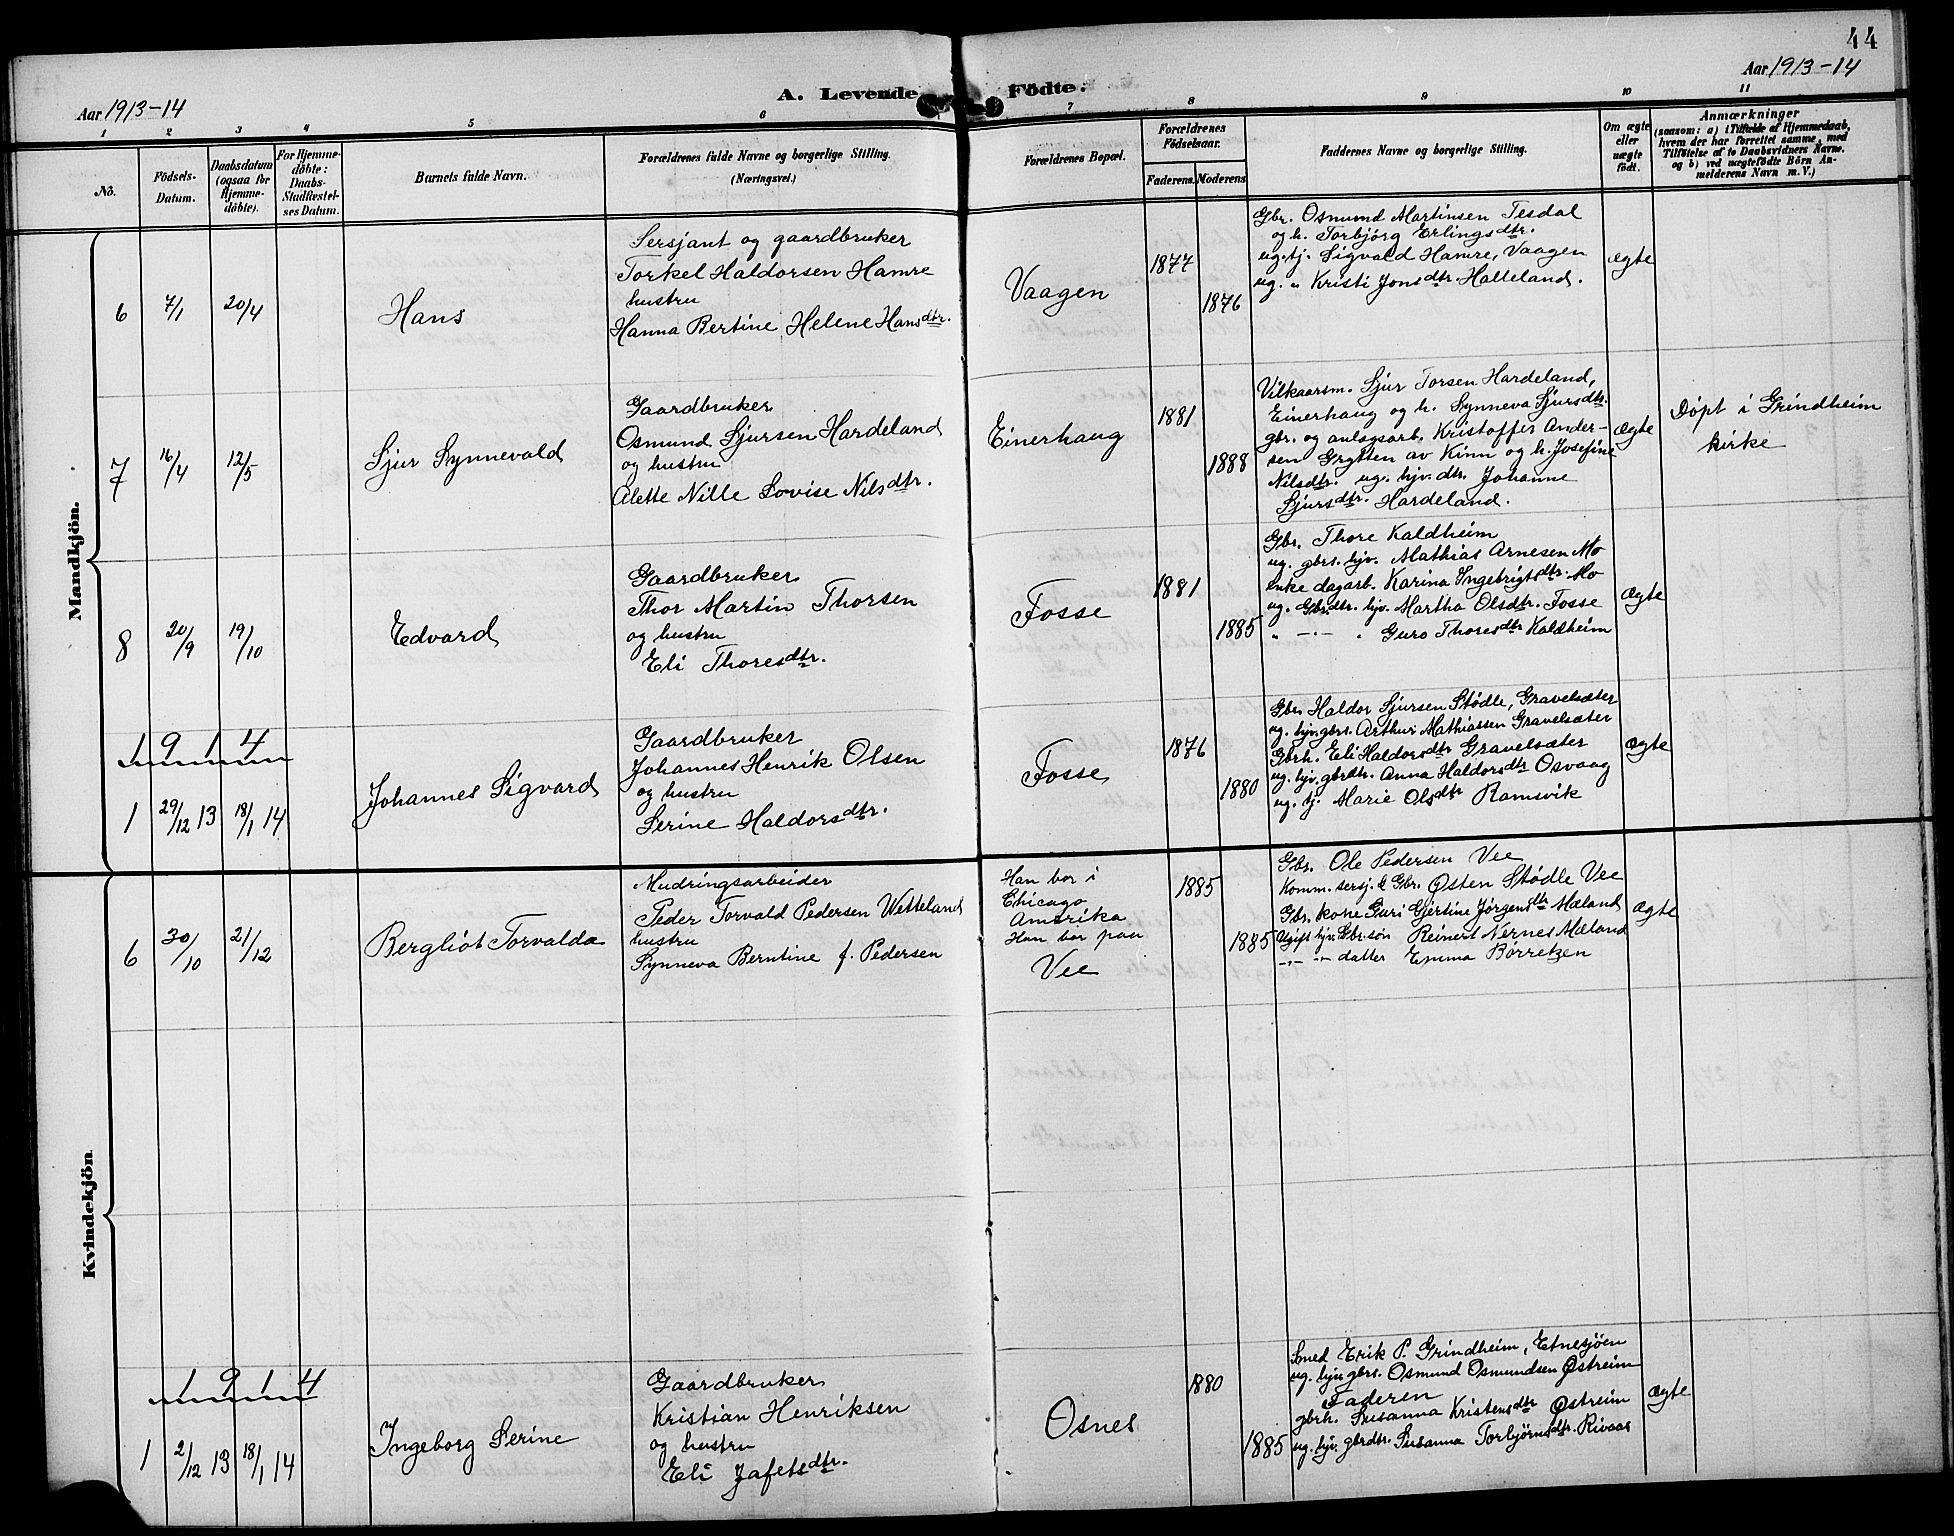 44
Aar 1913-14
A. Levende Födte.
Aar 1913-14
1 2 3 4 5 6 7 8 9 10 11
No.
Födsels-
Datum.
Daabsdatum
(ogsaa for
Hjemme-
döbte).
For Hjemme-
döbte:
Daabs-
Stadfæstel-
ses Datum.
Barnets fulde Navn.
Forældrenes fulde Navne og borgerlige Stilling.
(Næringsvei.)
Forældrenes Bopæl.
Forældrenes
Födselsaar.
Faderens. Moderens
Faddernes Navne og borgerlige Stilling.
Om ægte
eller
uægte
födt.
Anmærkninger
(saasom: a) i Tilfælde af Hjemmedaab,
hvem der har forrettet samme, med
Tilföielse af to Daabsvidners Navne.
og b) ved uægtefödte Börn An-
melderens Navn m. V.)
Mandkjön.
6 7/1 20/4
Hans
Sersjant og gaardbruker
Torkel Haldorsen Hamre
hustru
Hanna Bertine Helene Hansdtr.
Vaagen
1877
1876
Gbr. Osmund Martinsen Tesdal
og h. Torbjörg Erlingsdtr.
ug. tj. Sigvald Hamre, Vaagen
ug. „ Kristi Jonsdtr. Halleland.
ægte
7 16/4 12/5
Sjur Synnevald
Gaardbruker
Osmund Sjursen Hardeland
og hustru
Alette Nille Lovise Nilsdtr.
Einerhaug
1881
1888
Vilkaarsm. Sjur Torsen Hardeland,
Einerhaug og h. Synneva Sjursdtr.
gbr. og anlagsarb. Kristoffer Ander-
sen Grytten av Kinn og h. Josefine
Nilsdtr. ug. hjv. dtr. Johanne
Sjursdtr. Hardeland.
ægte
Döpt i Grindheim
kirke
8 20/9 19/10
Edvard
Gaardbruker
Thor Martin Thorsen
og hustru
Eli Thoresdtr.
Fosse
1881
1885
Gbr. Thore Kaldheim
ug. gbrs. hjv. Mathias Arnesen Mo
enke dagarb. Karina Ingebrigtsdtr. Mo
ug. Gbrdtr. hjv. Martha Olsdtr. Fosse
„ — „ — „ Guro Thoresdtr Kaldheim
ægte
1914
1 29/12 13 18/1 14
Johannes Sigvard
Gaardbruker
Johannes Henrik Olsen
og hustru
Serine Haldorsdtr.
Fosse
1876
1880
Gbr. Haldor Sjursen Stødle, Gravelsæter
ug. hjv. gbrs. Arthur Mathiassen Gravelsæter
Gbrh. Eli Haldorsdtr Gravelsæter
ug. hjv. gbrdtr. Anna Haldorsdtr Osvaag
ug. tj. Marie Olsdtr Ramsvik
ægte
Kvindekjön
6 30/10 21/12
Bergliot Torvalda
Mudringsarbeider
Peder Torvald Pedersen Wetteland
hustru
Synneva Berntine f. Pedersen
Han bor i
Chicago
Amerika
Han bor paa
Vee
1885
1885
Gbr. Ole Pedersen Vee
Komm. sersj. & Gbr. Østen Stødle Vee
Gbr. kone Guri Gjertine Jørgensdtr Mæland
Ugift hjv. Gbr.søn Reinert Nernes Mæland
— „ — „ — datter Emma Børretzen
ægte
1914
1 2/12 13 18/1 14
Ingeborg Serine
Gaardbruker
Kristian Henriksen
og hustru
Eli Jafetsdtr.
Osnes
1880
1885
Smed Erik P. Grindheim, Etnesjøen
ug. hjv. gbrs. Osmund Osmundsen Østreim
Faderen
gbrh. Susanna Kristensdtr Østreim
ug. hjv. gbrdtr. Susanna Torbjørnsdtr. Rivaas
ægte